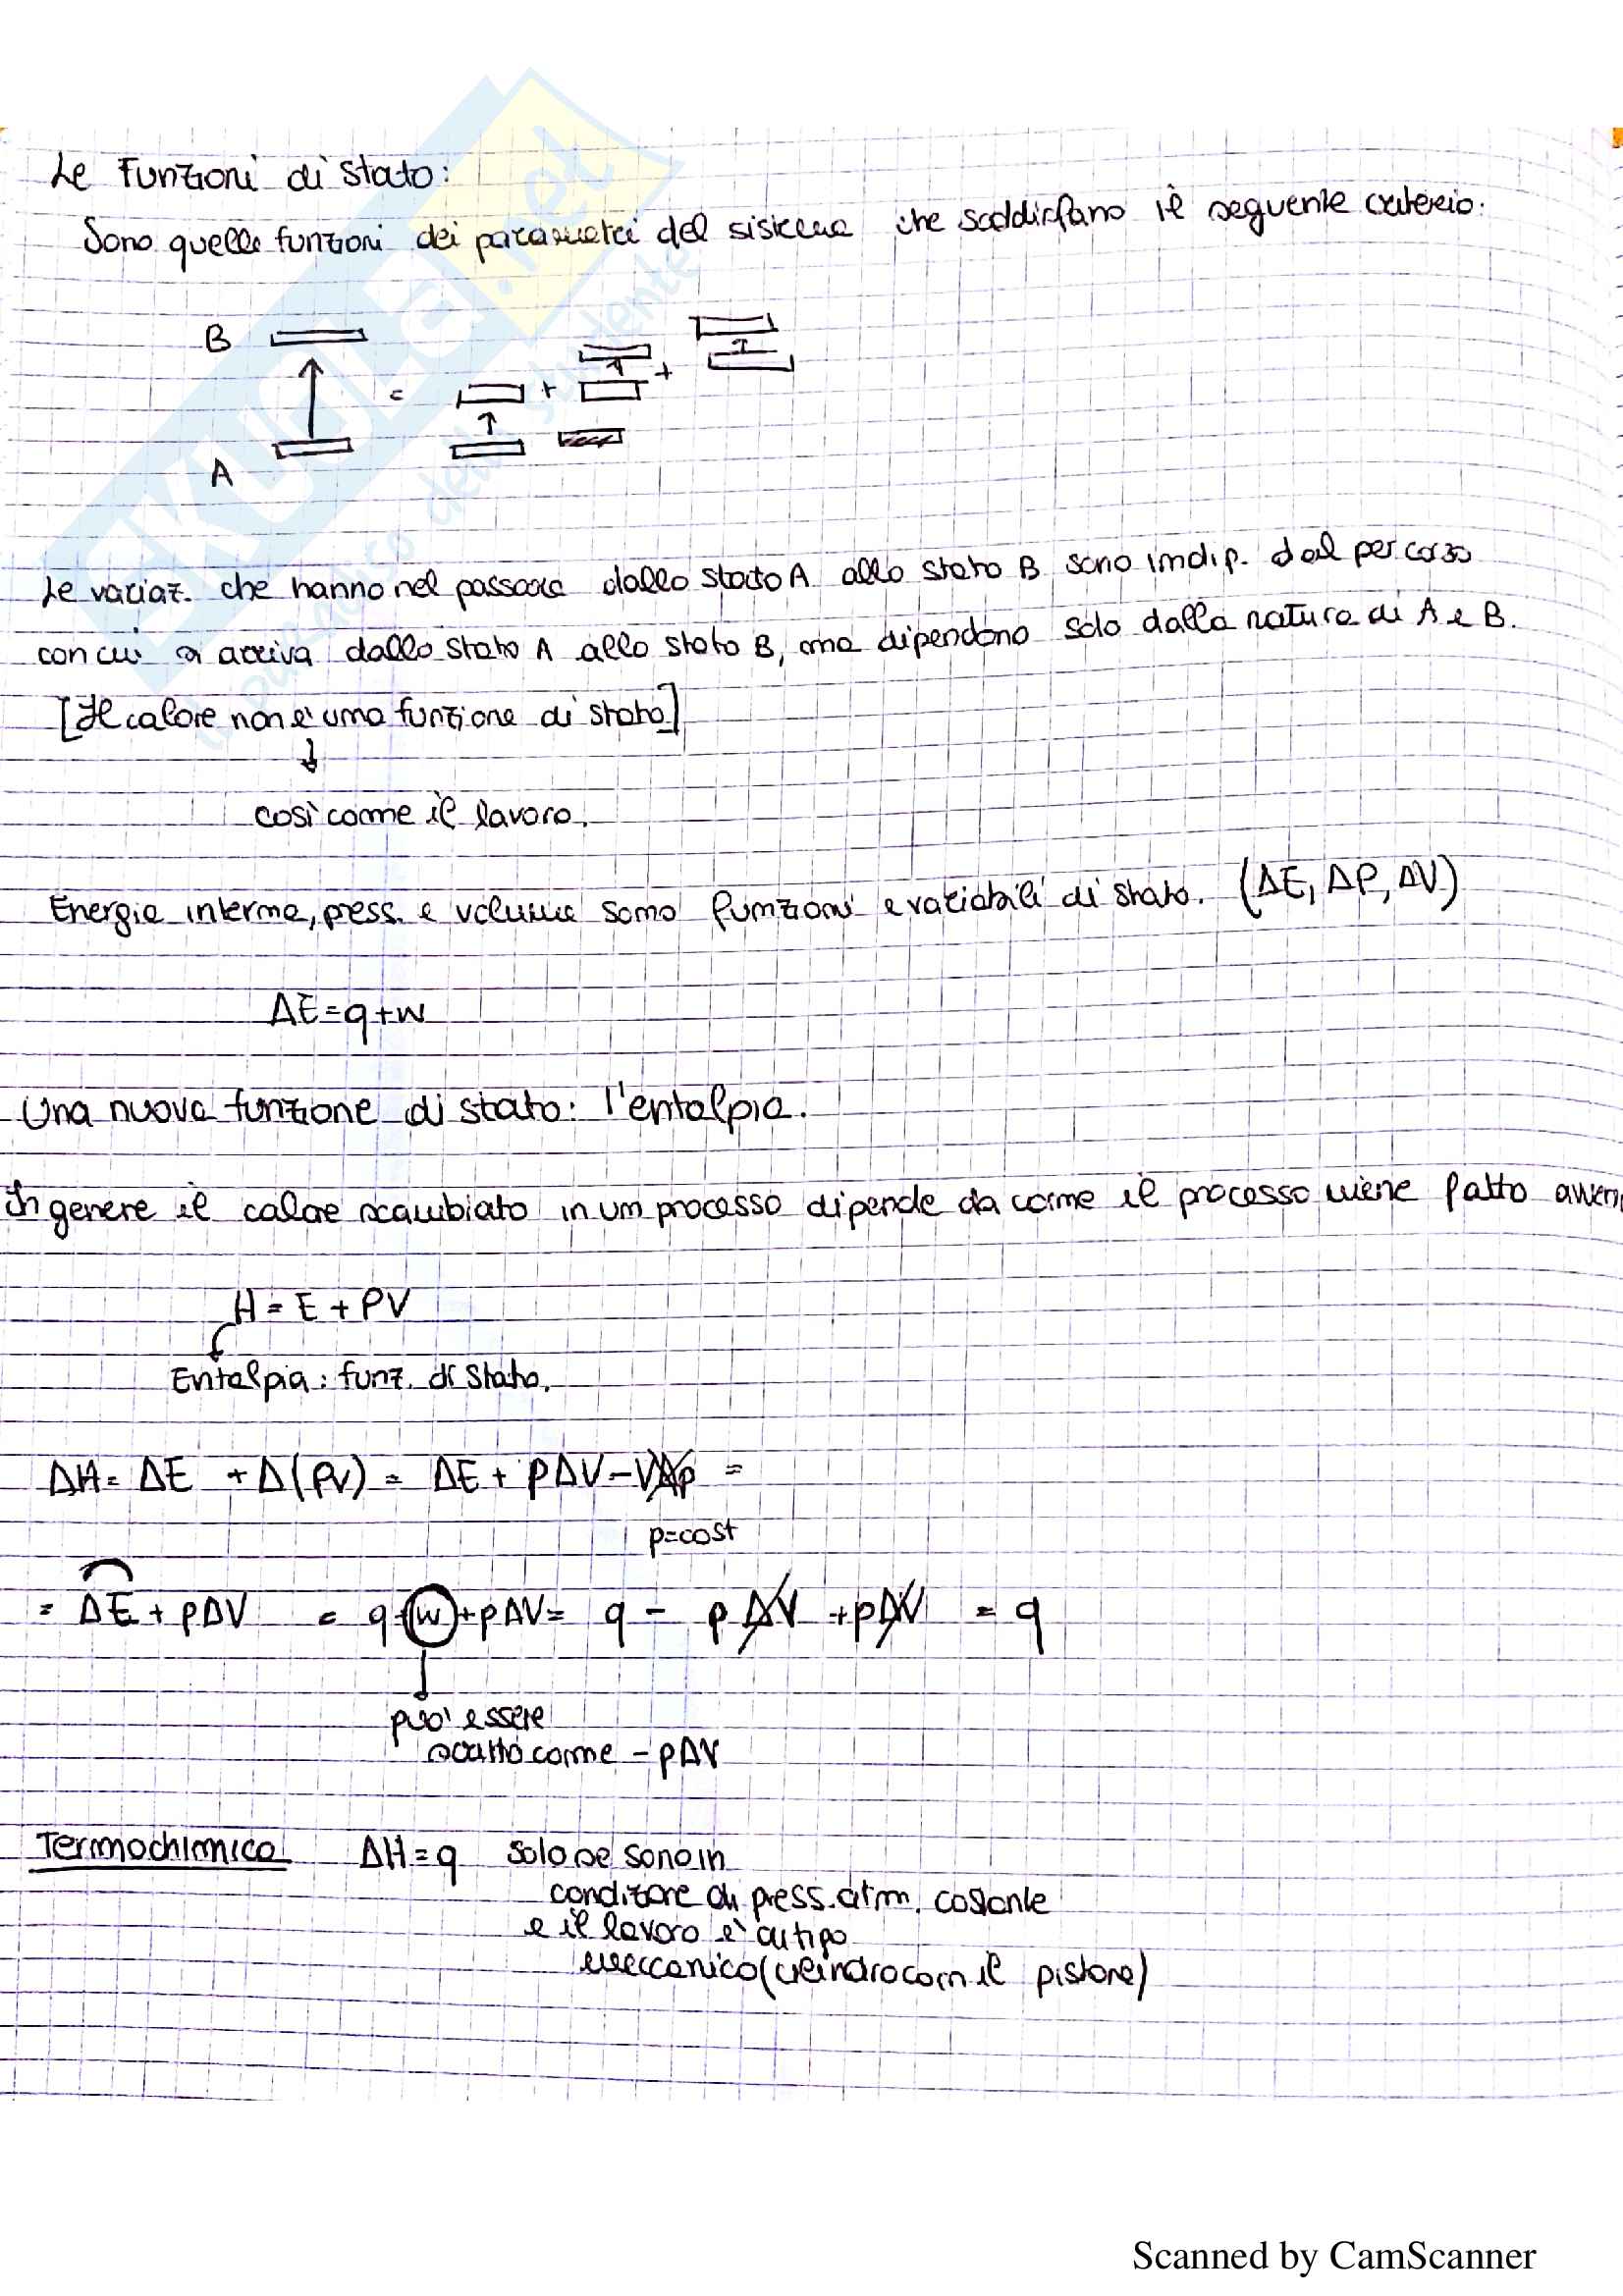 Le Funzioni di Stato:
Sono quelle funzioni dei parametri del sistema che soddisfano il seguente criterio:
B
= + +
A
Le variaz. che hanno nel passare dallo stato A allo stato B sono indip. dal percorso
con cui si arriva dallo stato A allo stato B, ma dipendono solo dalla natura di A e B.
[Il calore non è una funzione di stato]
↓
così come il lavoro.
Energia interna, press. e volume sono funzioni e variabili di stato. (ΔE, ΔP, ΔV)
ΔE=q+w
Una nuova funzione di stato: l'entalpia.
In genere il calore scambiato in un processo dipende da come il processo viene fatto avven
H = E + PV
Entalpia: funz. di Stato.
ΔH= ΔE + Δ(PV) = ΔE + pΔV - VΔp =
p=cost
= ΔE + pΔV = q + w + pΔV = q - pΔV + pΔV = q
può essere
scritto come - pΔV
Termochimica ΔH=q solo se sono in
condizione di press. atm. costante
e il lavoro è di tipo
meccanico (cilindro con il pistone)
SKUOLA.net
il paradiso dello studente
Scanned by CamScanner